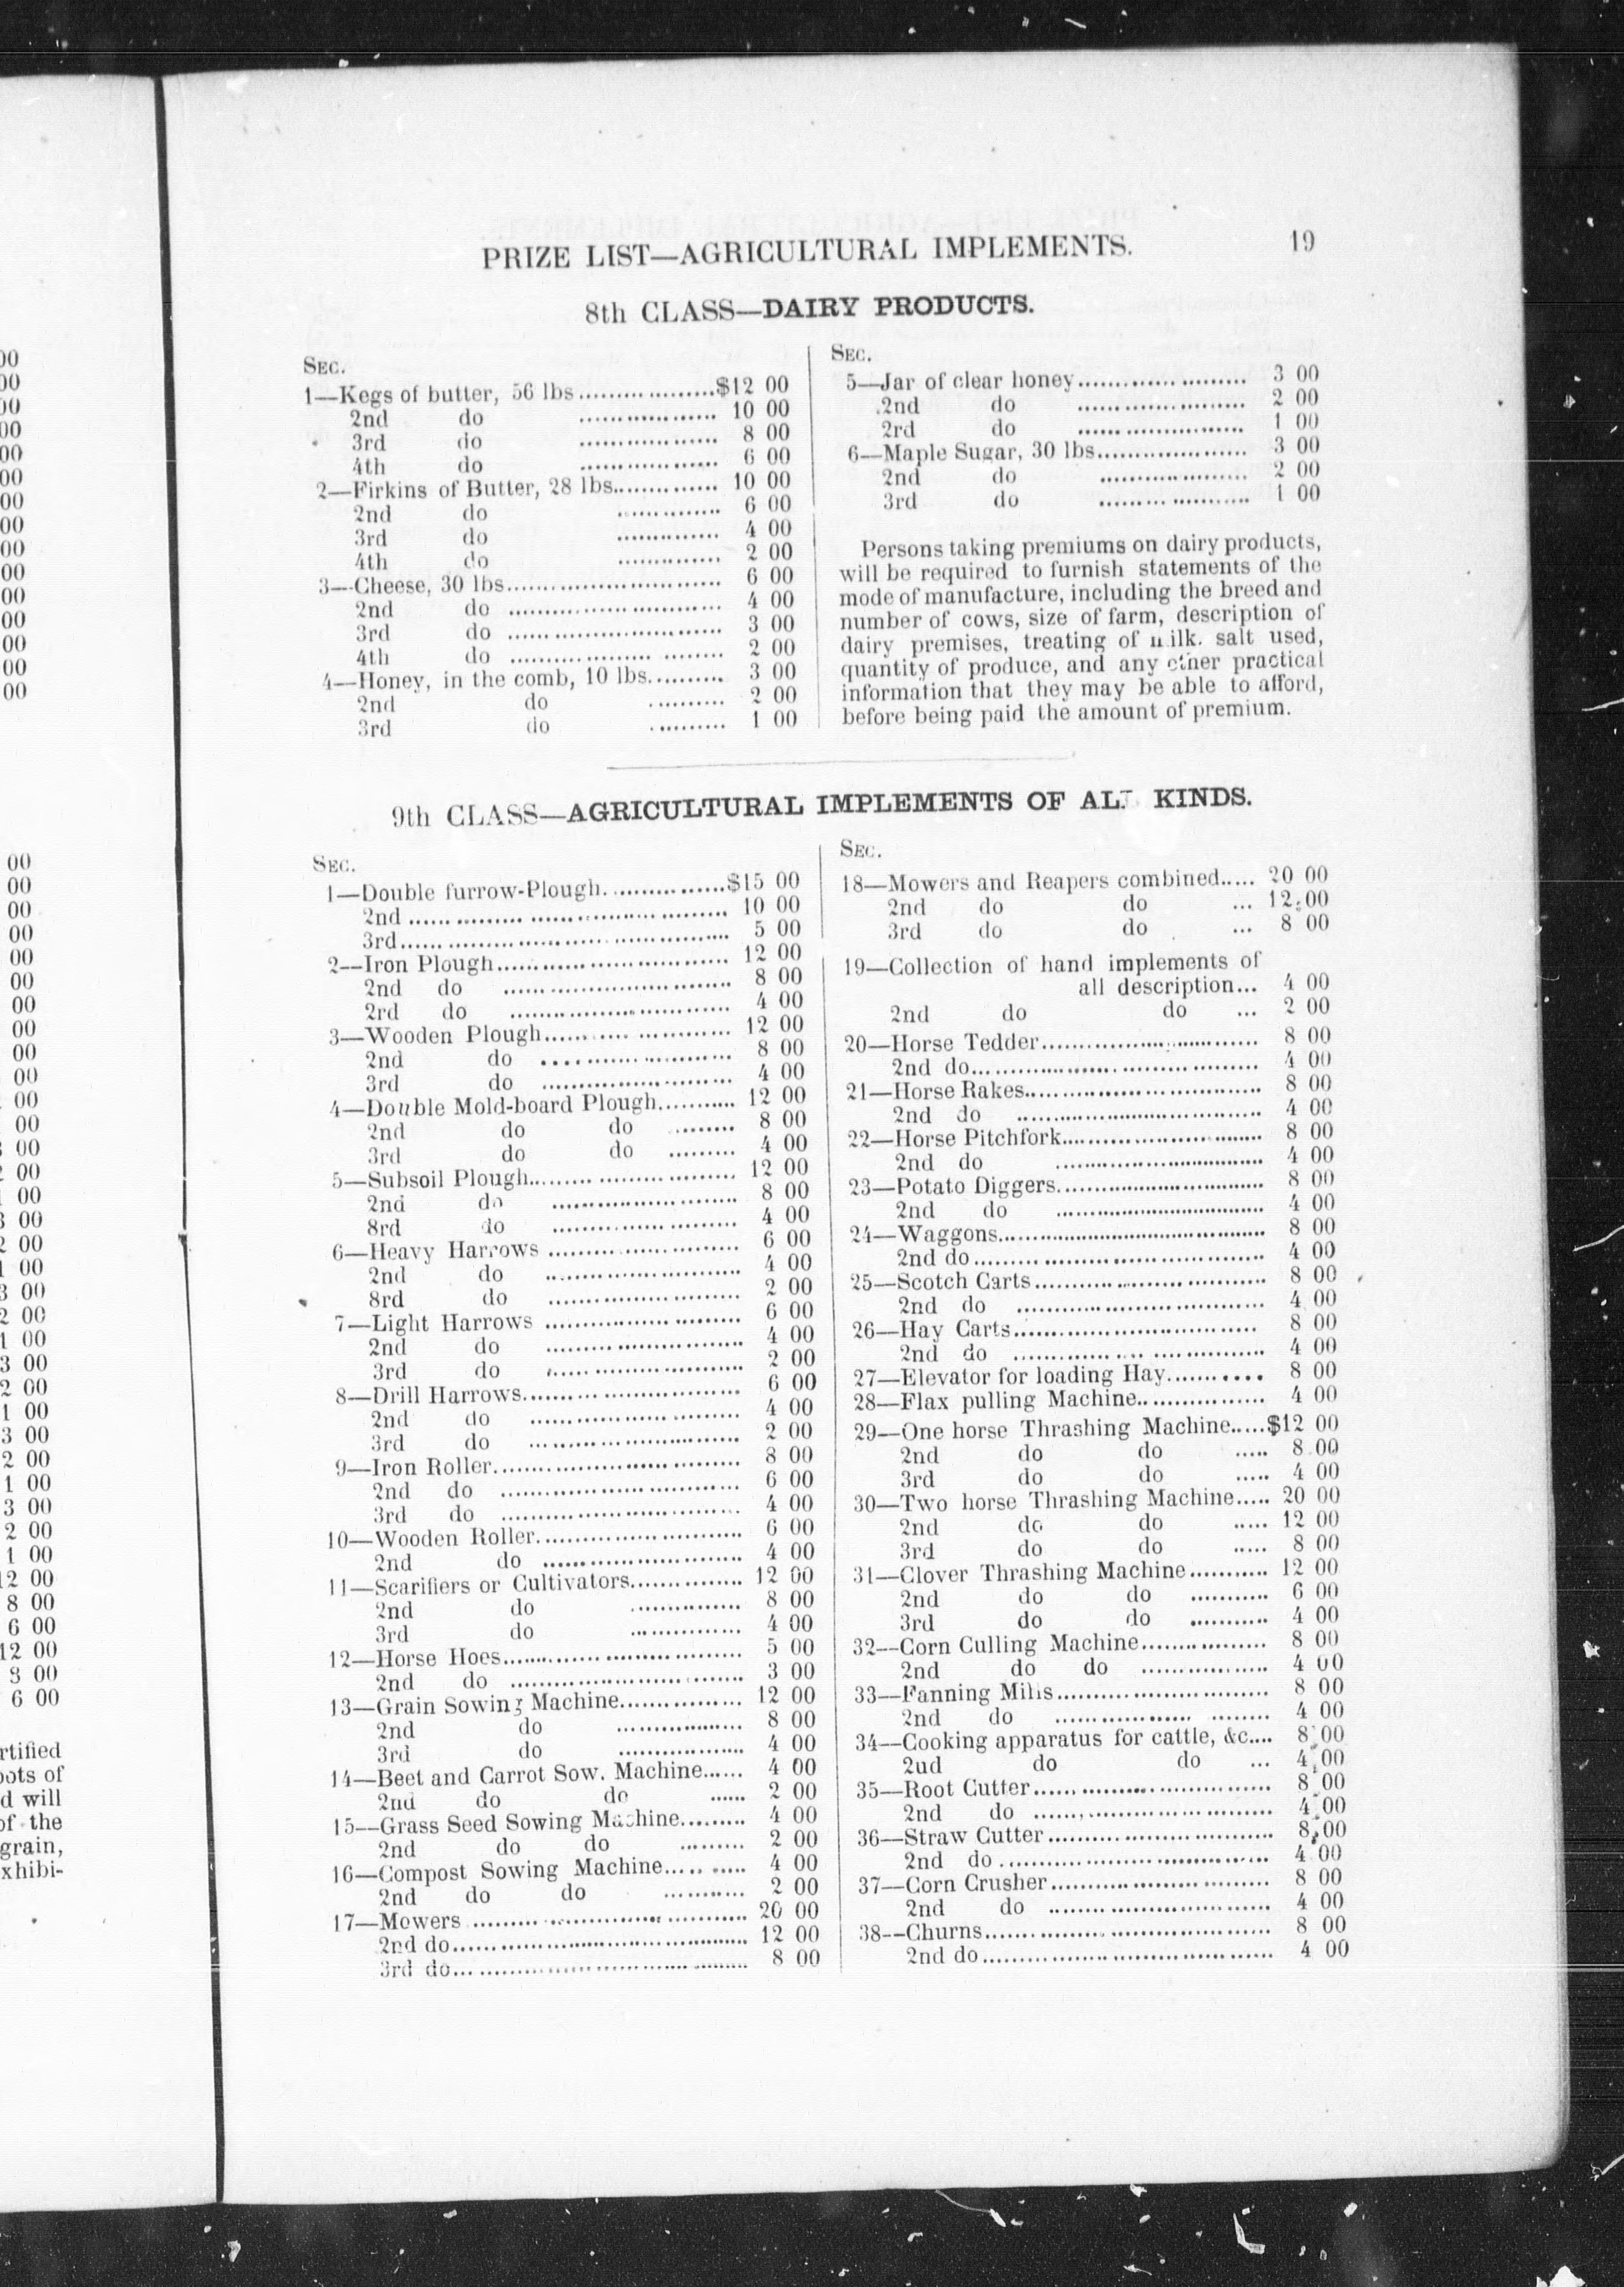 PRIZE LIST—AGRICULTURAL IMPLEMENTS. 19
8th CLASS—DAIRY PRODUCTS.
SEC.
1—Kegs of butter, 56 lbs..................$12 00
2nd do .................. 10 00
3rd do .................. 8 00
4th do .................. 6 00
2—Firkins of Butter, 28 lbs.............. 10 00
2nd do .............. 6 00
3rd do .............. 4 00
4th do .............. 2 00
3—Cheese, 30 lbs............................ 6 00
2nd do ............................ 4 00
3rd do ............................ 3 00
4th do ............................ 2 00
4—Honey, in the comb, 10 lbs.......... 3 00
2nd do .......... 2 00
3rd do .......... 1 00
SEC.
5—Jar of clear honey...................... 3 00
2nd do ...................... 2 00
2rd do ...................... 1 00
6—Maple Sugar, 30 lbs.................... 3 00
2nd do .................... 2 00
3rd do .................... 1 00
Persons taking premiums on dairy products,
will be required to furnish statements of the
mode of manufacture, including the breed and
number of cows, size of farm, description of
dairy premises, treating of milk. salt used,
quantity of produce, and any other practical
information that they may be able to afford,
before being paid the amount of premium.
9th CLASS—AGRICULTURAL IMPLEMENTS OF ALL KINDS.
SEC.
1—Double furrow-Plough................$15 00
2nd .......................................... 10 00
3rd........................................... 5 00
2—Iron Plough.............................. 12 00
2nd do .............................. 8 00
2rd do .............................. 4 00
3—Wooden Plough......................... 12 00
2nd do ......................... 8 00
3rd do ......................... 4 00
4—Double Mold-board Plough........... 12 00
2nd do do ......... 8 00
3rd do do ......... 4 00
5—Subsoil Plough........................... 12 00
2nd do ........................ 8 00
8rd do ........................ 4 00
6—Heavy Harrows ......................... 6 00
2nd do ......................... 4 00
8rd do ......................... 2 00
7—Light Harrows .......................... 6 00
2nd do .......................... 4 00
3rd do .......................... 2 00
8—Drill Harrows............................. 6 00
2nd do ............................ 4 00
3rd do ............................ 2 00
9—Iron Roller................................. 8 00
2nd do ................................ 6 00
3rd do ................................ 4 00
10—Wooden Roller........................... 6 00
2nd do ........................... 4 00
11—Scarifiers or Cultivators............... 12 00
2nd do .............. 8 00
3rd do .............. 4 00
12—Horse Hoes................................ 5 00
2nd do ............................... 3 00
13—Grain Sowing Machine................ 12 00
2nd do ................. 8 00
3rd do ................. 4 00
14—Beet and Carrot Sow. Machine...... 4 00
2nd do do ...... 2 00
15—Grass Seed Sowing Machine......... 4 00
2nd do do ......... 2 00
16—Compost Sowing Machine........... 4 00
2nd do do ........... 2 00
17—Mowers .................................... 20 00
2nd do....................................... 12 00
3rd do....................................... 8 00
SEC.
18—Mowers and Reapers combined..... 20 00
2nd do do ... 12 00
3rd do do ... 8 00
19—Collection of hand implements of
all description... 4 00
2nd do do ... 2 00
20—Horse Tedder............................. 8 00
2nd do...................................... 4 00
21—Horse Rakes............................... 8 00
2nd do ................................ 4 00
22—Horse Pitchfork.......................... 8 00
2nd do ........................... 4 00
23—Potato Diggers........................... 8 00
2nd do ........................... 4 00
24—Waggons................................... 8 00
2nd do...................................... 4 00
25—Scotch Carts............................... 8 00
2nd do ................................ 4 00
26—Hay Carts................................. 8 00
2nd do ................................ 4 00
27—Elevator for loading Hay........... 8 00
28—Flax pulling Machine................. 4 00
29—One horse Thrashing Machine.....$12 00
2nd do do ..... 8 00
3rd do do ..... 4 00
30—Two horse Thrashing Machine..... 20 00
2nd do do ..... 12 00
3rd do do ..... 8 00
31—Clover Thrashing Machine........... 12 00
2nd do do ........... 6 00
3rd do do ........... 4 00
32—Corn Culling Machine................. 8 00
2nd do do ................. 4 00
33—Fanning Mills............................ 8 00
2nd do ........................... 4 00
34—Cooking apparatus for cattle, &c.... 8 00
2ud do do ... 4 00
35—Root Cutter............................... 8 00
2nd do ............................... 4 00
36—Straw Cutter.............................. 8 00
2nd do.................................... 4 00
37—Corn Crusher............................. 8 00
2nd do ............................. 4 00
38—Churns...................................... 8 00
2nd do....................................... 4 00